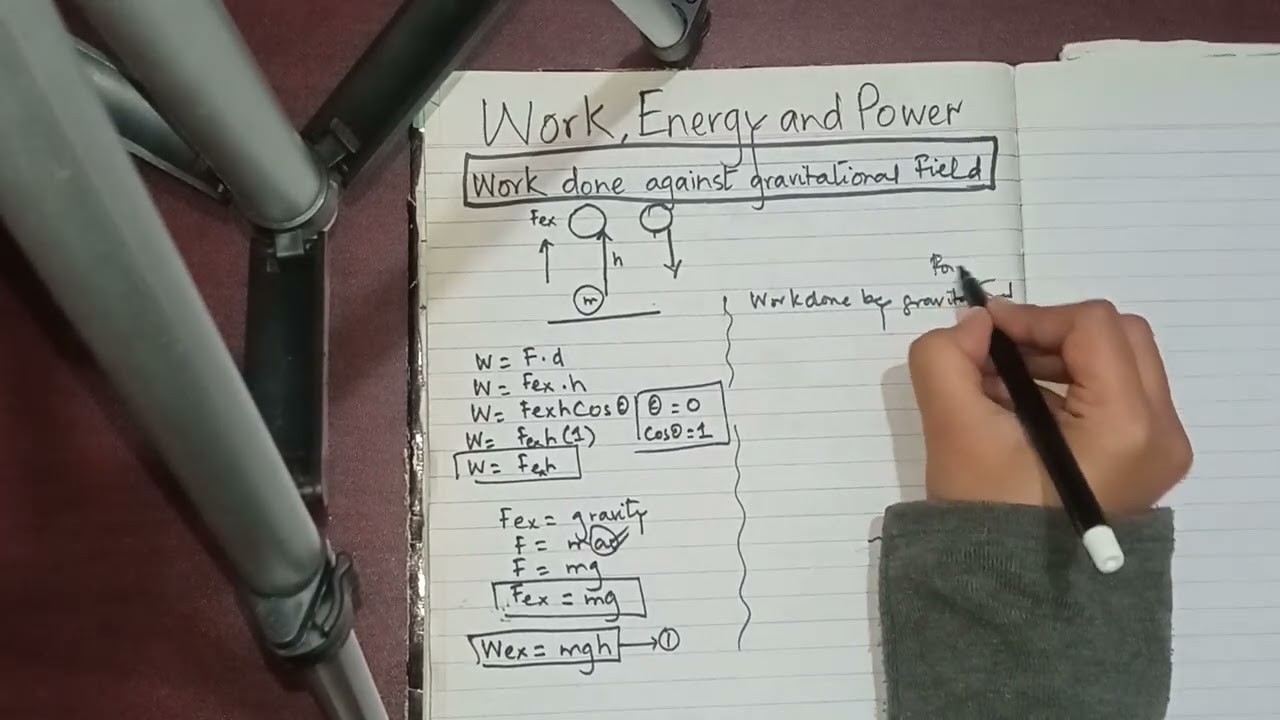 Work, Energy and Power
Work done against gravitational Field
Fex
h
m
W = F.d
W = Fex.h
W = FexhCosθ
θ = 0
Cosθ=1
W = Fexh(1)
W = Fexh
Fex = gravity
F = ma
F = mg
Fex = mg
Wex = mgh → ①
Workdone by